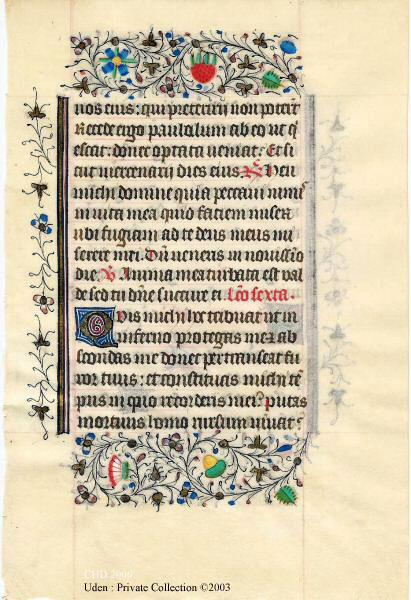 nos eius: qui preteriri non poterit
Recede ergo paululum ab eo ut q̄
escat: donec optata veniat: Et si
cut mercenarij dies eius. R̄ Heu
michi domine quia peccaui nimis
in vita mea quid faciem miser
ubi fugiam ad te deus meus mi
serere mei. Dū veneris in nouissīo
die. V̄ Anima mea turbata est val
de sed tu dn̄e sucurre ei. Lc̄o sexta.
Quis michi hoc tribuat ut in
inferno protegas me: ab
scondas me donec pertranseat fu
ror tuus: et constituas michi tē
pus in quo recorderis mei? putas
mortuus homo rursum viuat?
CHD 2006
Uden : Private Collection ©2003